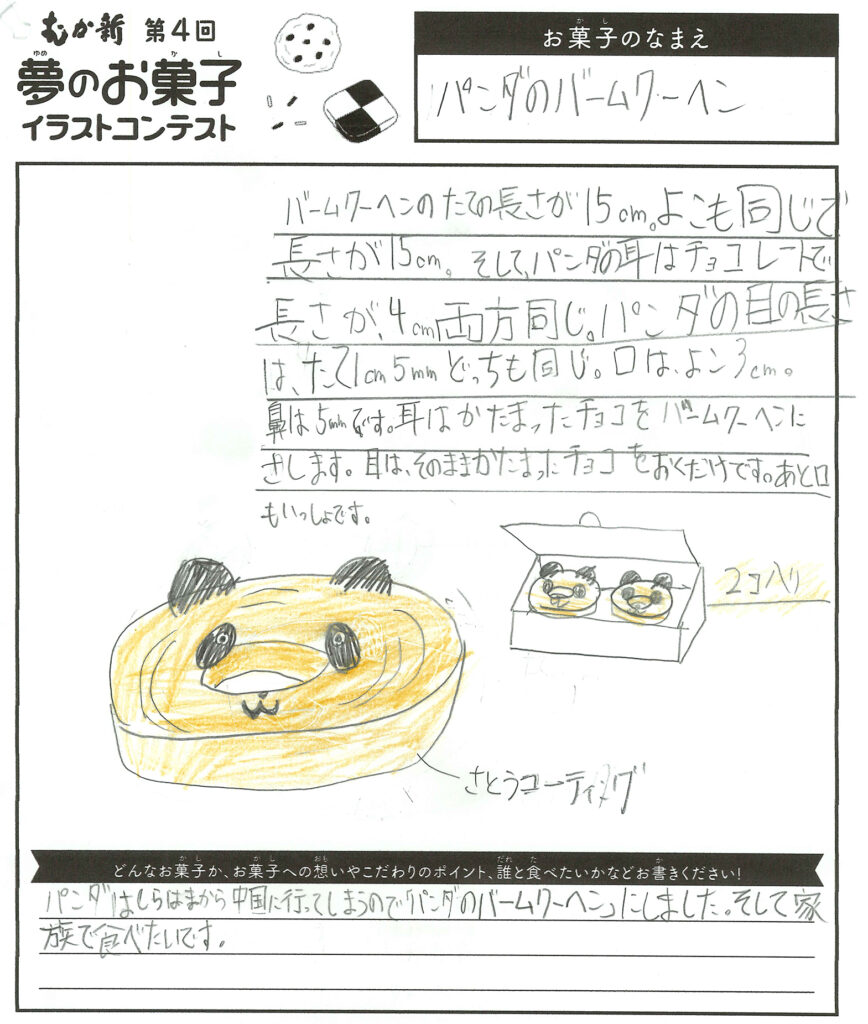 むか新 第4回
夢のお菓子
イラストコンテスト
お菓子のなまえ
パンダのバームクーヘン
バームクーヘンのたての長さが15cm。よこも同じで
長さが15cm。そして、パンダの耳はチョコレートで
長さが、4cm両方同じ。パンダの目の長さ
は、たて1cm5mmどっちも同じ。口は、よこ3cm。
鼻は5mmです。耳はかたまったチョコをバームクーヘンに
さします。目は、そのままかたまったチョコをおくだけです。あと口
もいっしょです。
2コ入り
さとうコーティング
どんなお菓子か、お菓子への想いやこだわりのポイント、誰と食べたいかなどお書きください!
パンダはしらはまから中国に行ってしまうので「パンダのバームクーヘン」にしました。そして家
族で食べたいです。